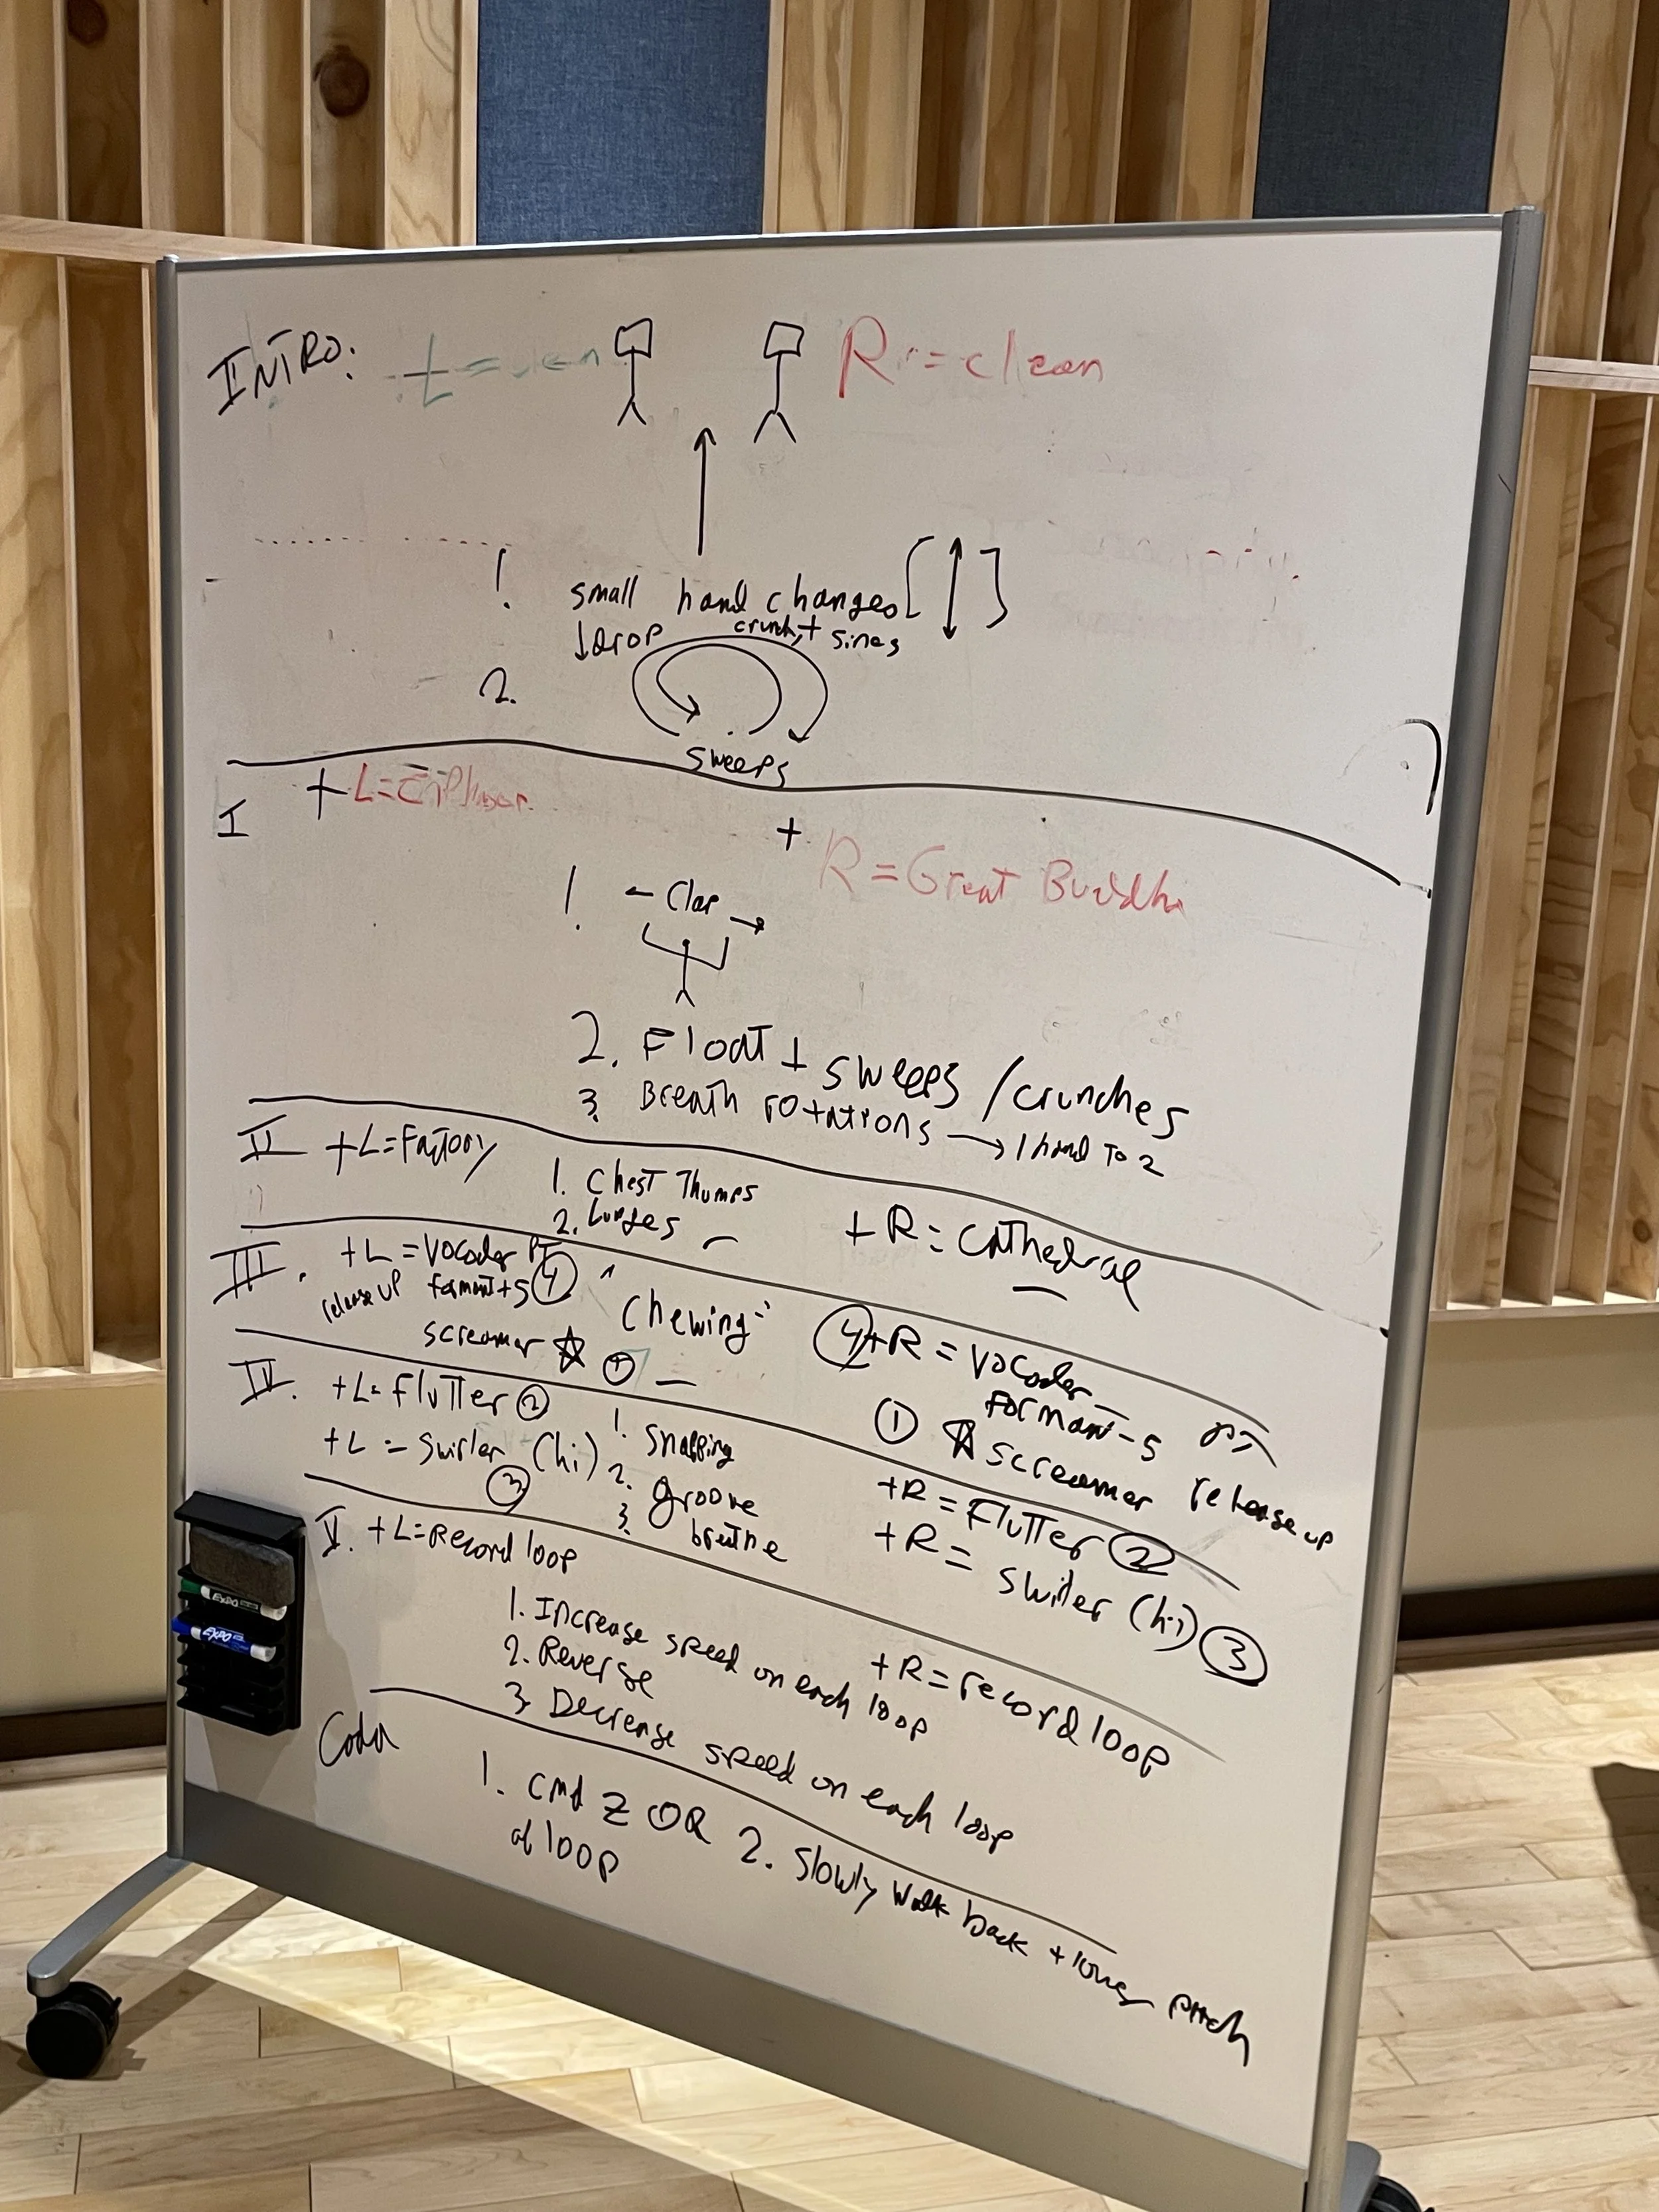 INTRO:
R = clean
1. small hand changes [ ↕ ]
↓ Drop crunch + sines
2.
sweeps
I + L=
+ R = Great Buddh
1. ← Clap →
2. Float + sweeps / crunches
3. Breath rotations → 1 hand To 2
II +L=Factory
1. Chest Thumps
2. Lunges
+ R = Cathedral
III. +L = Vocoder
release up formant+5 ④
screamer ☆ ①
"Chewing"
④+R = Vocoder
Formant-5
① ☆ screamer release up
IV. +L= Flutter ②
+L = Swirler (hi) ③
1. Snapping
2. groove
3. breathe
+R = Flutter ②
+R = Swirler (hi) ③
V. +L=Record loop
1. Increase speed on each loop
2. Reverse
3. Decrease speed on each loop
+R = record loop
Coda
1. cmd Z OR 2. Slowly walk back + lower pitch
of loop
EXPO
EXPO